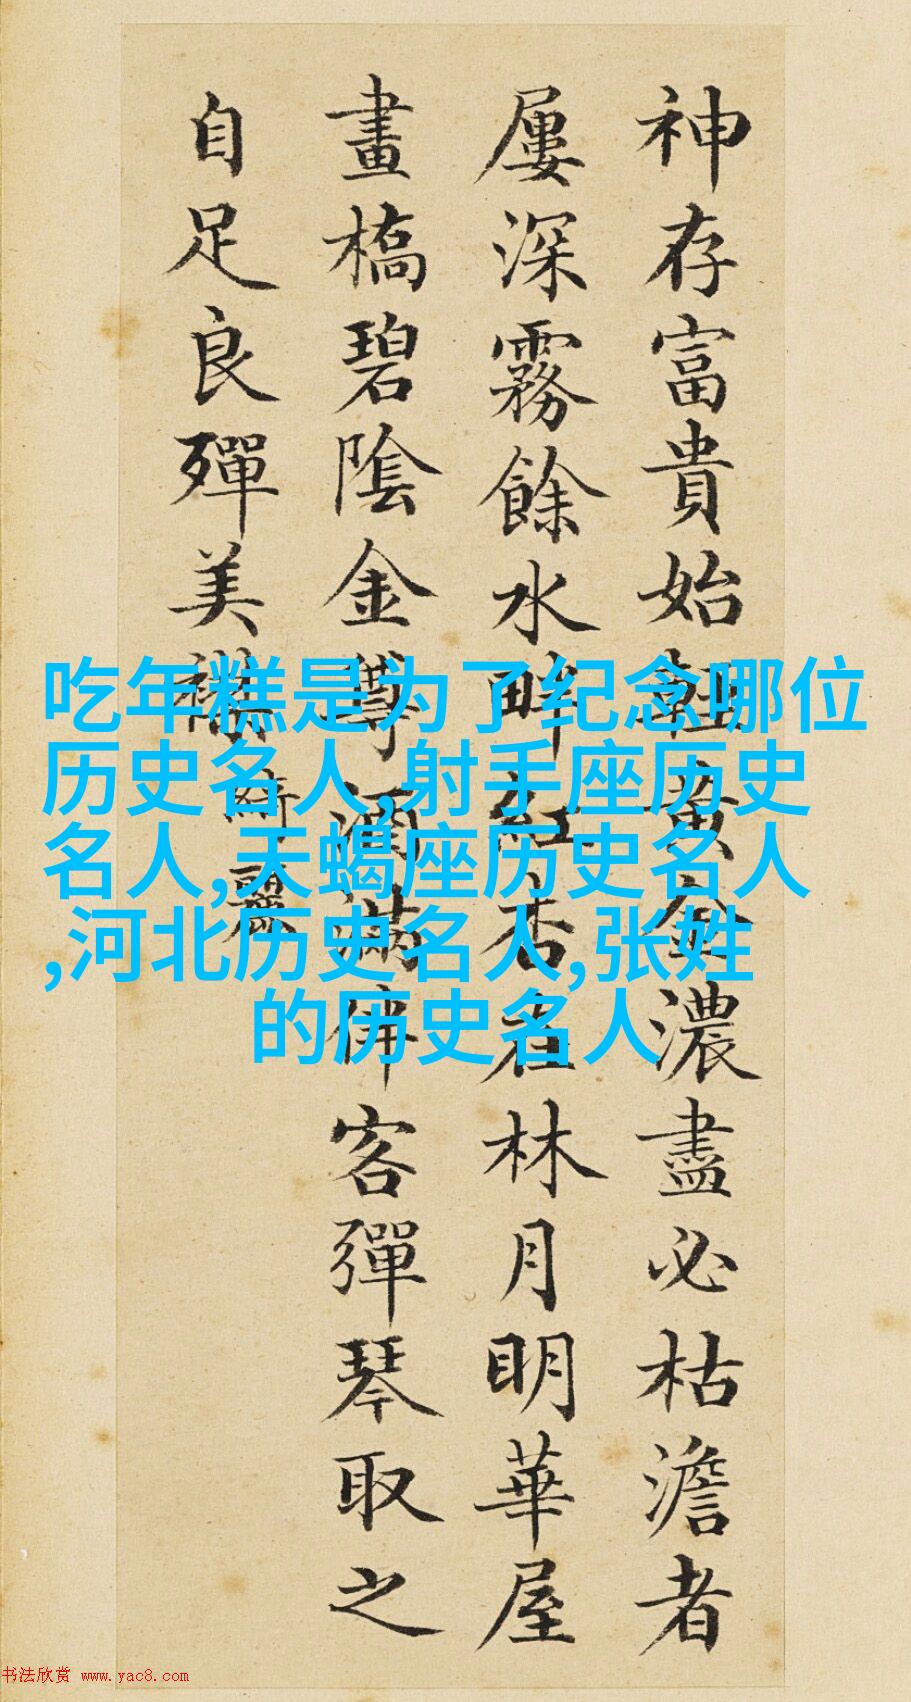 神存富貴始輕黃金濃盡必枯澹者
屢深霧餘水畔紅杏在林月明華屋
畫橋碧陰金尊酒滿伴客彈琴取之
自足良殫美襟
綺麗
吃年糕是为了纪念哪位
历史名人,射手座历史
名人,天蝎座历史名人
,河北历史名人,张姓
的历史名人
书法欣赏 www.yac8.com